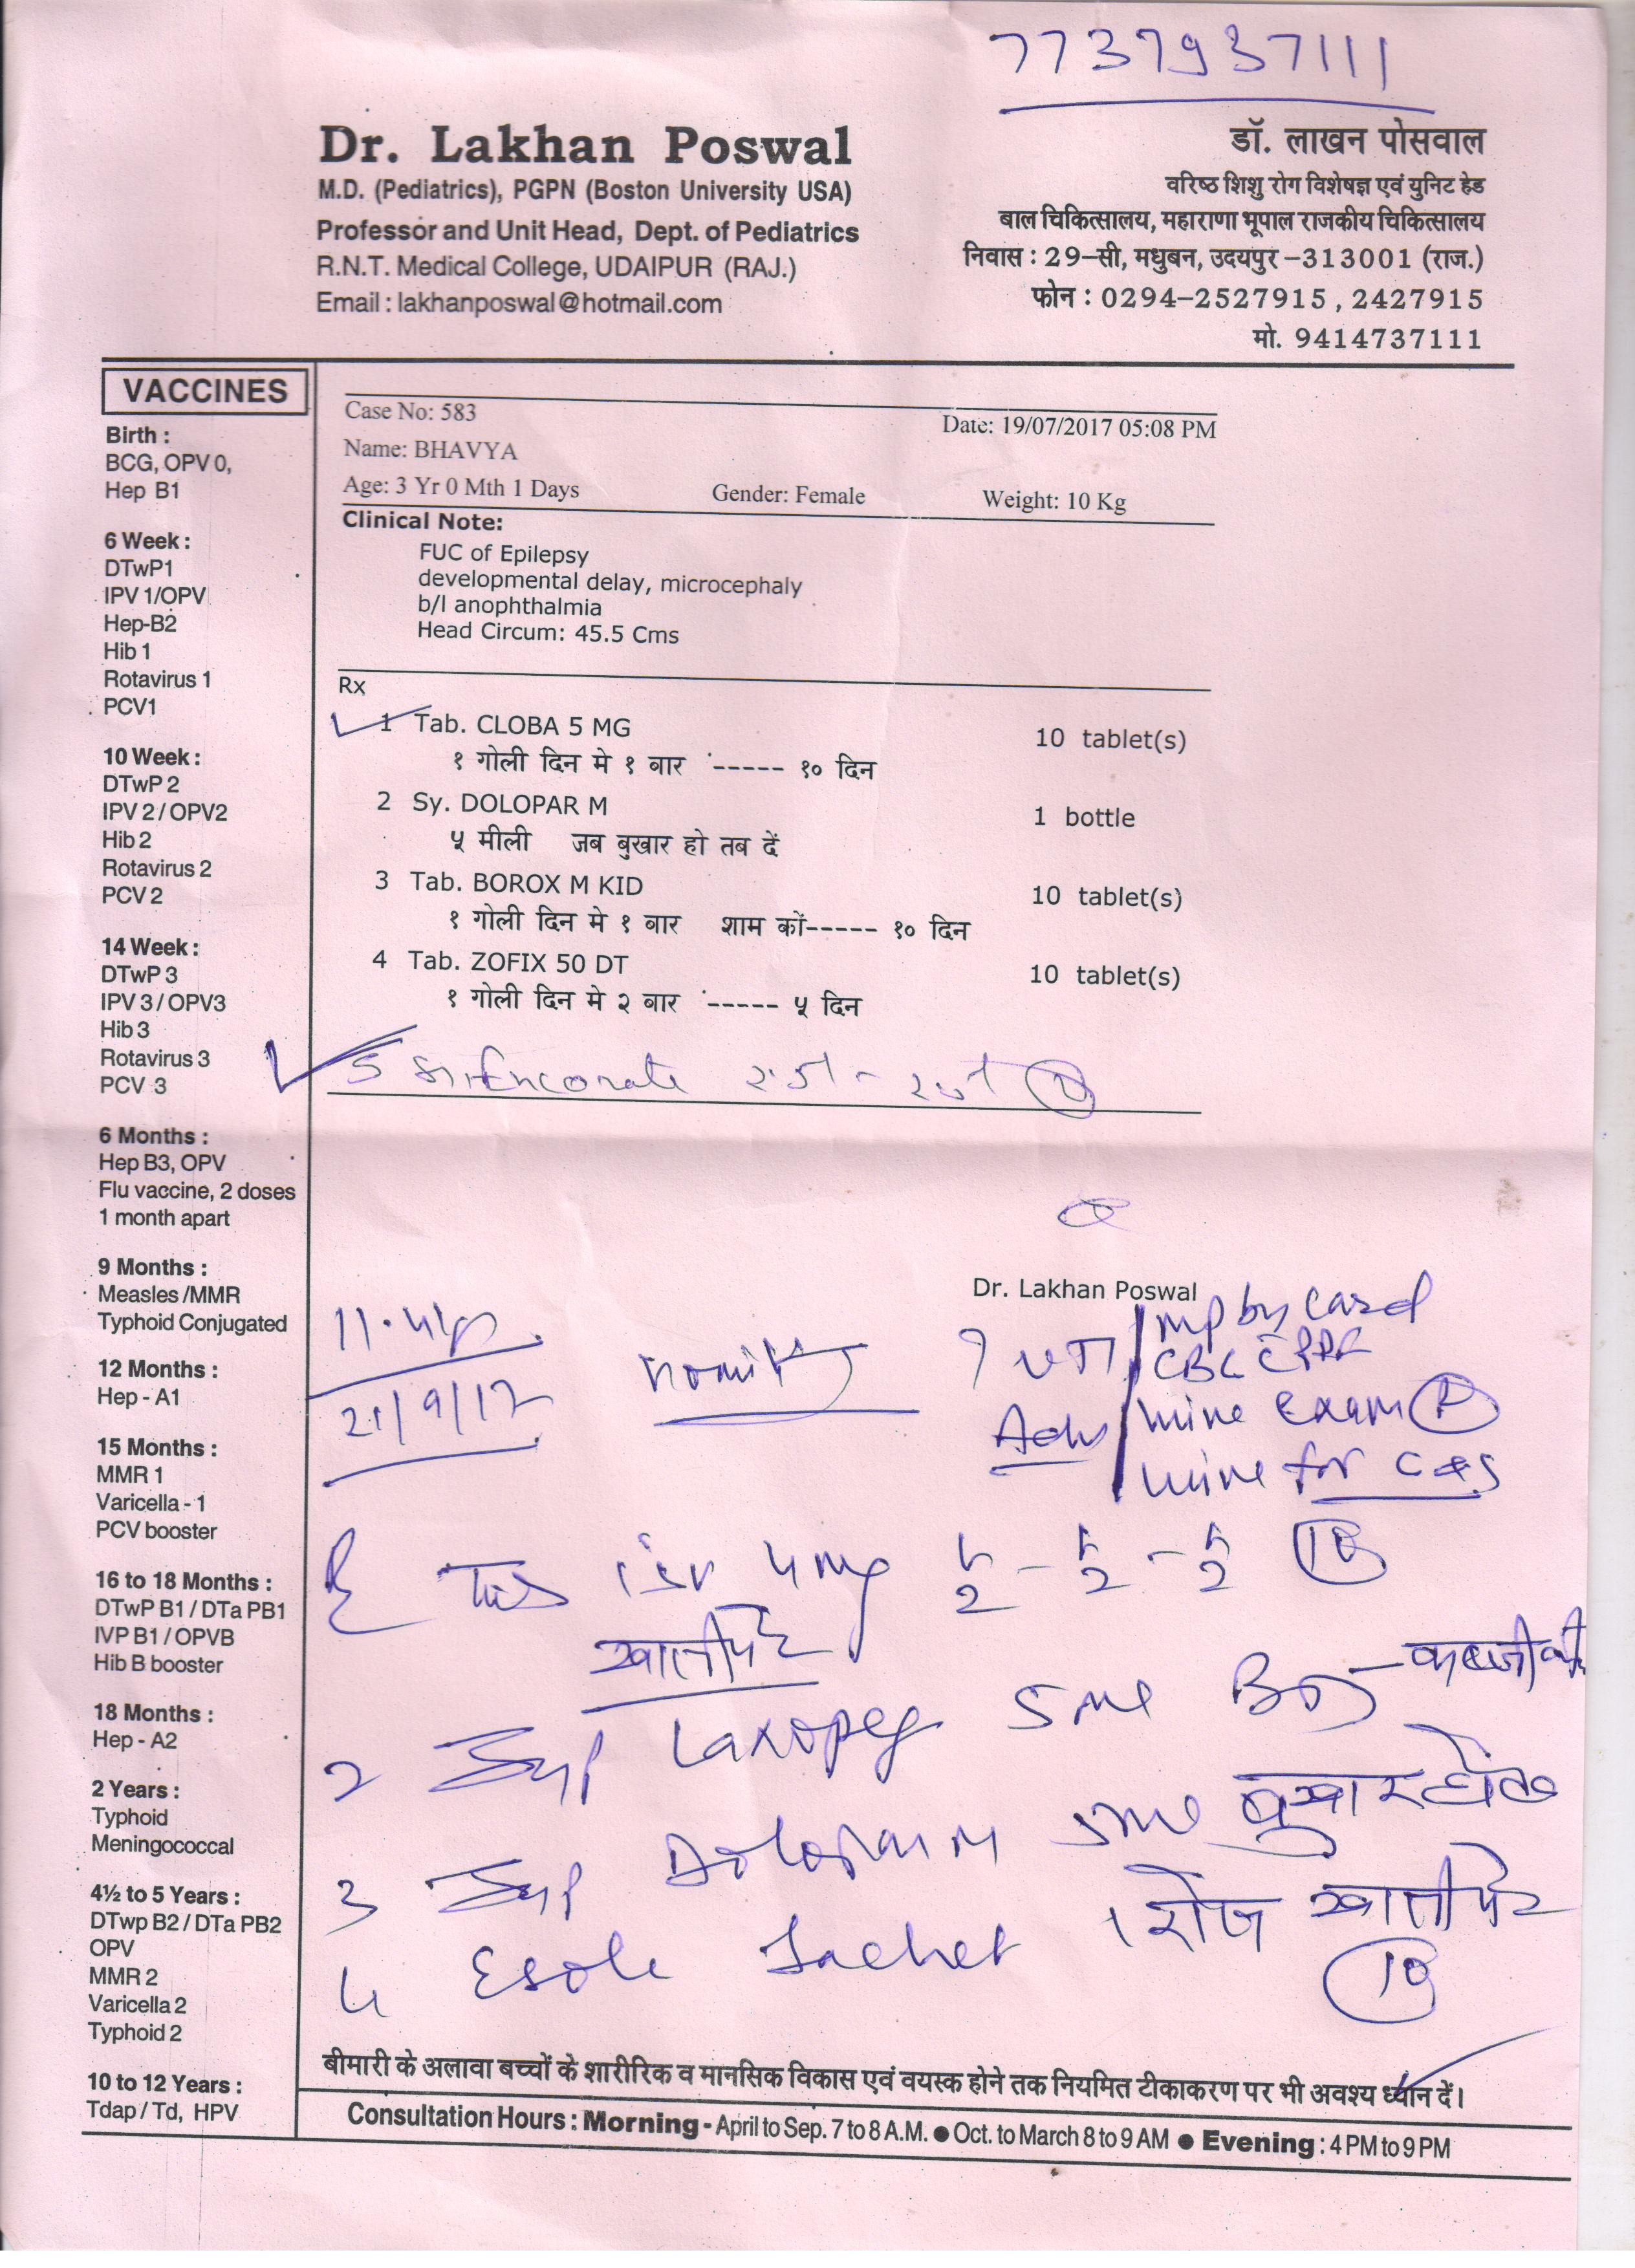 7737937111
Dr. Lakhan Poswal
M.D. (Pediatrics), PGPN (Boston University USA)
Professor and Unit Head, Dept. of Pediatrics
R.N.T. Medical College, UDAIPUR (RAJ.)
Email : lakhanposwal@hotmail.com
डॉ. लाखन पोसवाल
वरिष्ठ शिशु रोग विशेषज्ञ एवं युनिट हेड
बाल चिकित्सालय, महाराणा भूपाल राजकीय चिकित्सालय
निवास : 29-सी, मधुबन, उदयपुर-313001 (राज.)
फोन : 0294-2527915, 2427915
मो. 9414737111
VACCINES
Birth :
BCG, OPV 0,
Hep B1
6 Week :
DTwP1
IPV 1/OPV
Hep-B2
Hib 1
Rotavirus 1
PCV1
10 Week :
DTwP 2
IPV 2 / OPV2
Hib 2
Rotavirus 2
PCV 2
14 Week :
DTwP 3
IPV 3 / OPV3
Hib 3
Rotavirus 3
PCV 3
6 Months :
Hep B3, OPV
Flu vaccine, 2 doses
1 month apart
9 Months :
Measles /MMR
Typhoid Conjugated
12 Months :
Hep - A1
15 Months :
MMR 1
Varicella - 1
PCV booster
16 to 18 Months :
DTwP B1 / DTa PB1
IVP B1 / OPVB
Hib B booster
18 Months :
Hep - A2
2 Years :
Typhoid
Meningococcal
4½ to 5 Years :
DTwp B2 / DTa PB2
OPV
MMR 2
Varicella 2
Typhoid 2
10 to 12 Years :
Tdap / Td, HPV
Case No: 583
Date: 19/07/2017 05:08 PM
Name: BHAVYA
Age: 3 Yr 0 Mth 1 Days Gender: Female Weight: 10 Kg
Clinical Note:
FUC of Epilepsy
developmental delay, microcephaly
b/l anophthalmia
Head Circum: 45.5 Cms
Rx
1 Tab. CLOBA 5 MG 10 tablet(s)
१ गोली दिन मे १ बार ----- १० दिन
2 Sy. DOLOPAR M 1 bottle
५ मीली जब बुखार हो तब दें
3 Tab. BOROX M KID 10 tablet(s)
१ गोली दिन मे १ बार शाम कों----- १० दिन
4 Tab. ZOFIX 50 DT 10 tablet(s)
१ गोली दिन मे २ बार ----- ५ दिन
5
Dr. Lakhan Poswal
mp by card
? UTI CBC
Adv urine Exam
urine for C&S
21/9/17
4 mg
खालीपेट
2 Syp Laxopeg 5ml
3 Syp Dolopar M 5ml बुखार
4 Esole Sachet 1 रोज खालीपेट
10
बीमारी के अलावा बच्चों के शारीरिक व मानसिक विकास एवं वयस्क होने तक नियमित टीकाकरण पर भी अवश्य ध्यान दें।
Consultation Hours : Morning - April to Sep. 7 to 8 A.M. ● Oct. to March 8 to 9 AM ● Evening : 4 PM to 9 PM